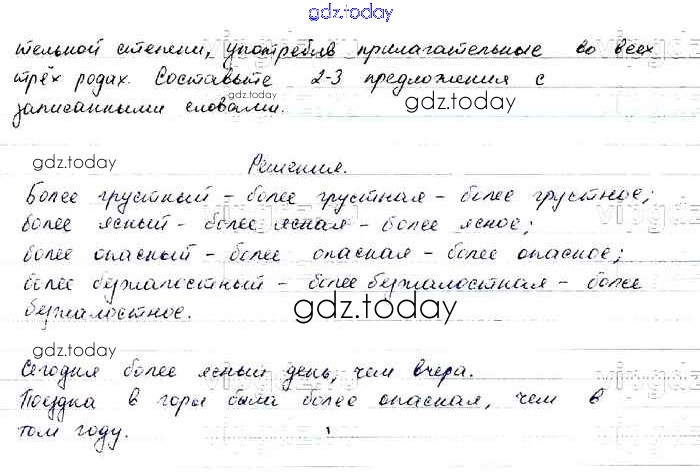 gdz.today
тельной степени, употребив прилагательные во всех
трёх родах. Составьте 2-3 предложения с
gdz.today
записанными словами.
gdz.today
gdz.today
Решение.
Более грустный - более грустная - более грустное;
более ясный - более ясная - более ясное;
более опасный - более опасная - более опасное;
более безжалостный - более безжалостная - более
безжалостное.
gdz.today
gdz.today
Сегодня более ясный день, чем вчера.
Поездка в горы была более опасная, чем в
том году.
gdz.today